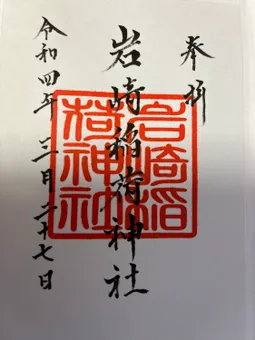 奉拝
岩崎稲荷神社
岩崎稲荷神社
令和四年三月二十七日